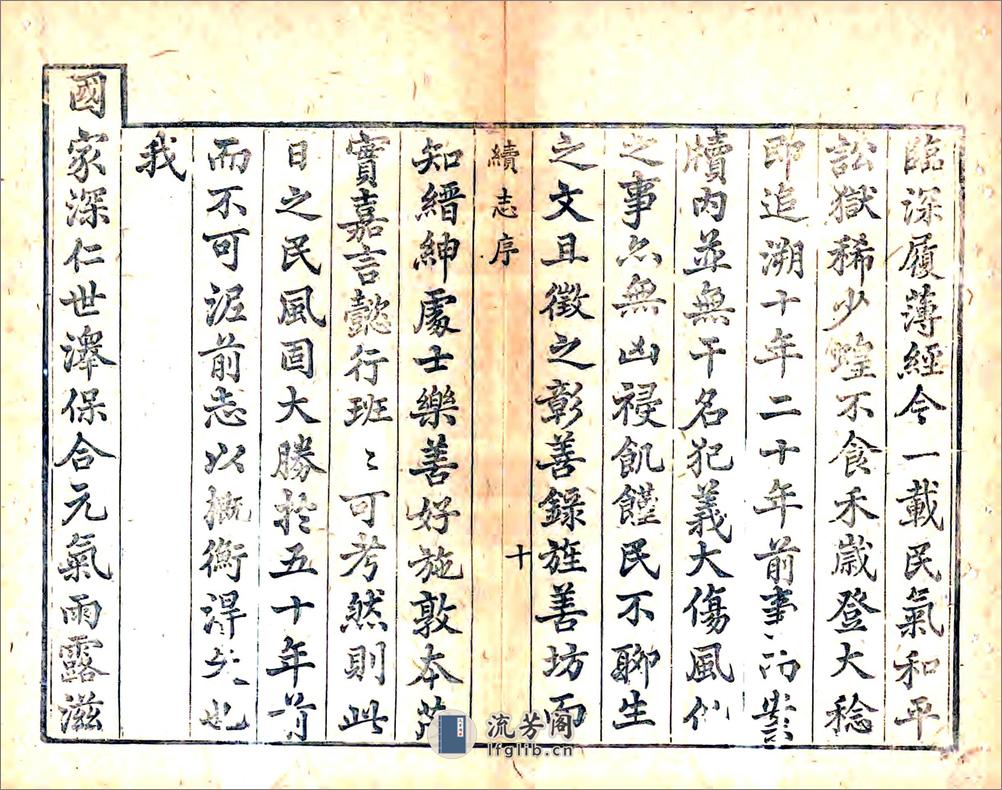 臨深履薄經今一載民氣和平
訟獄稀少蝗不食禾歲登大稔
即追溯十年二十年前事而案
牘內並無干名犯義大傷風化
之事亦無凶祲飢饉民不聊生
之文且徵之彰善錄旌善坊而
續志序
十
知縉紳處士樂善好施敦本
實嘉言懿行班〻可考然則此
日之民風固大勝於五十年前
而不可泥前志以概衡得失也
我
國家深仁世澤保合元氣雨露滋
流芳阁
lfglib.cn